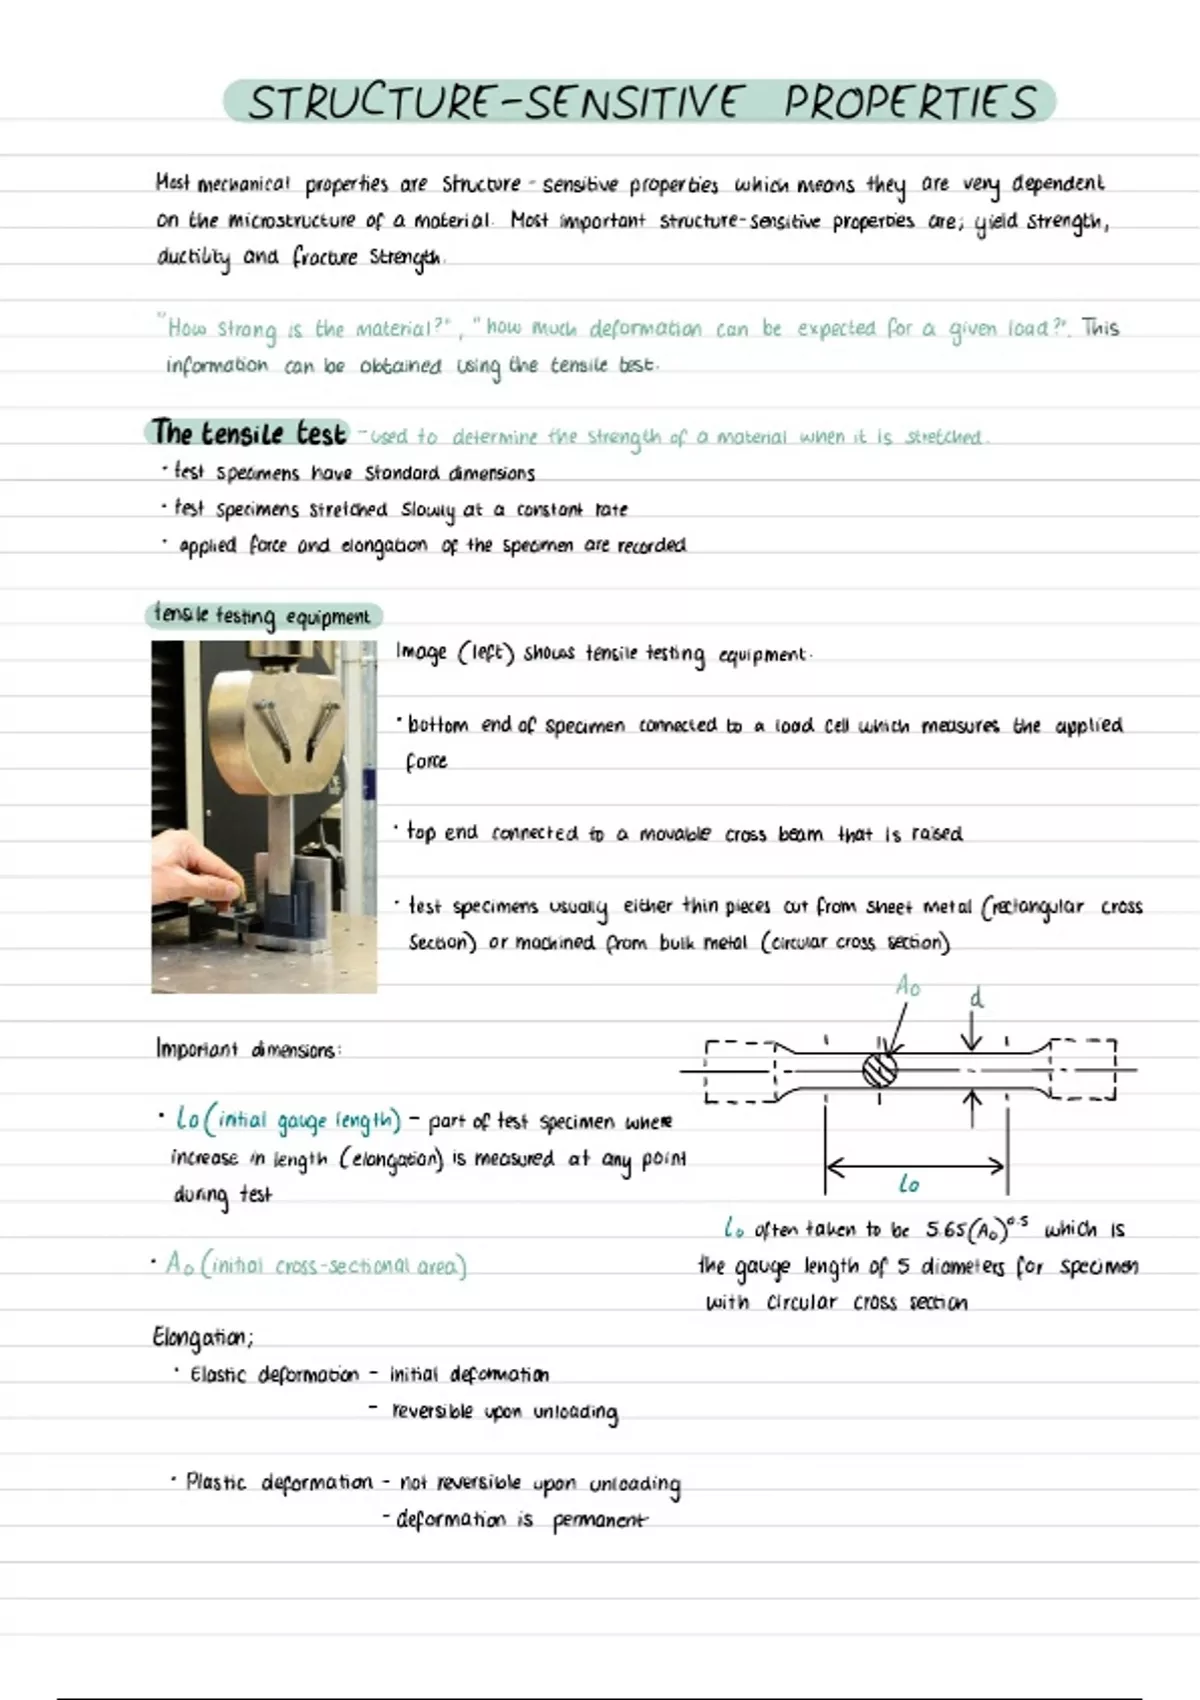 STRUCTURE-SENSITIVE PROPERTIES
Most mechanical properties are structure-sensitive properties which means they are very dependent
on the microstructure of a material. Most important structure-sensitive properties are; yield strength,
ductility and fracture strength.
"How strong is the material?", "how much deformation can be expected for a given load?". This
information can be obtained using the tensile test.
The tensile test - used to determine the strength of a material when it is stretched.
· test specimens have standard dimensions
· test specimens stretched slowly at a constant rate
· applied force and elongation of the specimen are recorded
tensile testing equipment
Image (left) shows tensile testing equipment.
· bottom end of specimen connected to a load cell which measures the applied
force
· top end connected to a movable cross beam that is raised
· test specimens usually either thin pieces cut from sheet metal (rectangular cross
section) or machined from bulk metal (circular cross section)
A₀ d
Important dimensions:
· L₀ (initial gauge length) - part of test specimen where
increase in length (elongation) is measured at any point
during test
L₀
L₀ often taken to be 5.65(A₀)^0.5 which is
the gauge length of 5 diameters for specimen
with circular cross section
· A₀ (initial cross-sectional area)
Elongation;
· Elastic deformation - initial deformation
- reversible upon unloading
· Plastic deformation - not reversible upon unloading
- deformation is permanent